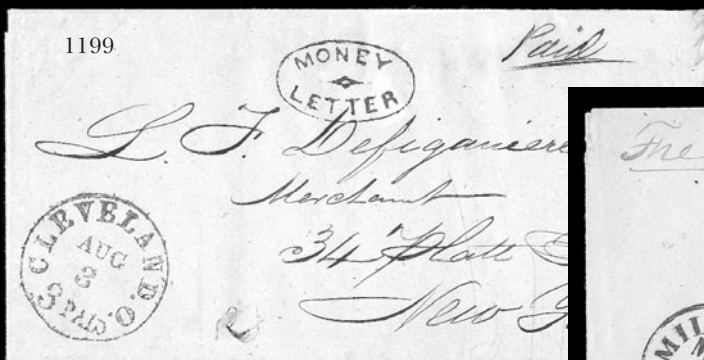 1199
Paid
MONEY
LETTER
L. F. Defiganiere
Merchant
34 Platt S
New Y
CLEVELAND. O.
AUG
3
3 PAID
Free
MIL